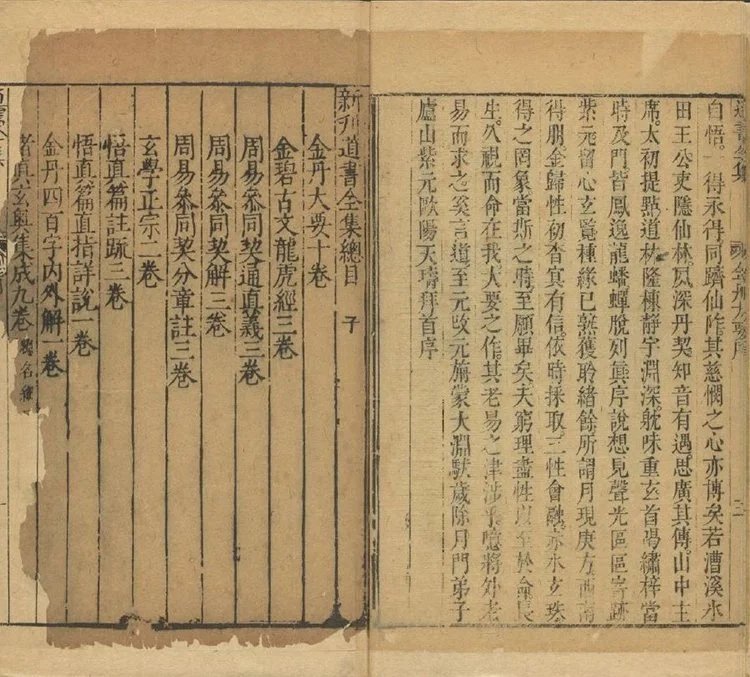 道書全集 金丹大要序 三
自悟。一得永得同躋仙阼其慈憫之心亦博矣若漕溪水
田王公吏隱仙林夙深丹契知音有遇思廣其傳山中主
席太初提點道林隆棟靜宇淵深躭味重玄首捐繡梓當
時及門皆鳳逸龍蟠蟬脫列眞序說想見聲光區區寄跡
紫元留心玄覽種緣已熟獲聆緒餘所謂月現庚方西南
得朋金歸性初杳冥有信依時採取三性會融赤水玄珠
得之罔象當斯之時至願畢矣夫窮理盡性以至於命長
生久視而命在我大要之作其老易之津涉乎噫將外老
易而求之奚言道至元改元旃蒙大淵獻歲除月門弟子
廬山紫元歐陽天璹拜首序
新刋道書全集總目 子
金丹大要十卷
金碧古文龍虎經三卷
周易參同契通眞義三卷
周易參同契解三卷
周易參同契分章註三卷
玄學正宗二卷
悟眞篇註疏三卷
悟眞篇直指詳說一卷
金丹四百字內外解一卷
眞玄奧集成九卷